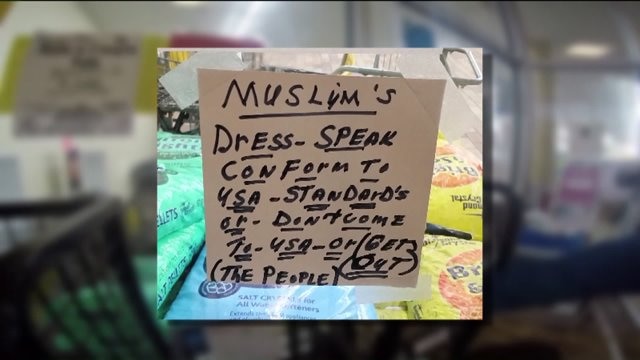 MUSLIM's
DrEss - SPEAK
CONFORM To
USA - STANDARD'S
or - DON+COME
To - USA - Or (GET
(THE PEOPLE) OUT)
SALT CRYSTALS for
All Water Softeners